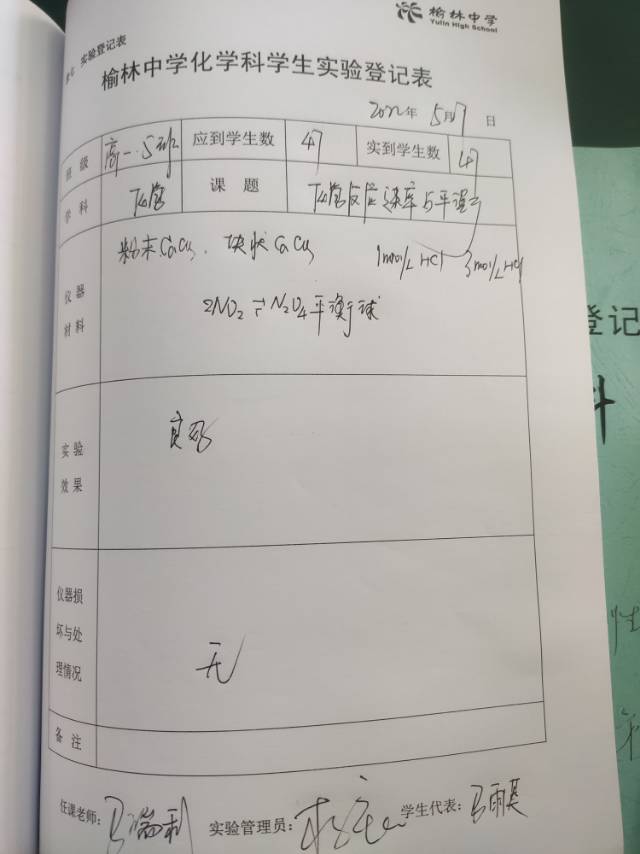 榆林中学
Yulin High School
实验登记表
榆林中学化学科学生实验登记表
2022年 5月17日
班级 高一.5班 应到学生数 47 实到学生数 47
学科 化学 课题 化学反应速率与平衡
仪器材料 粉末CaCO3、块状CaCO3 1mol/L HCl 3mol/L HCl
2NO2⇌N2O4平衡球
实验效果 良好
仪器损坏与处理情况 无
备注
任课老师: 马瑞利 实验管理员: 学生代表: 马雨
登记
性